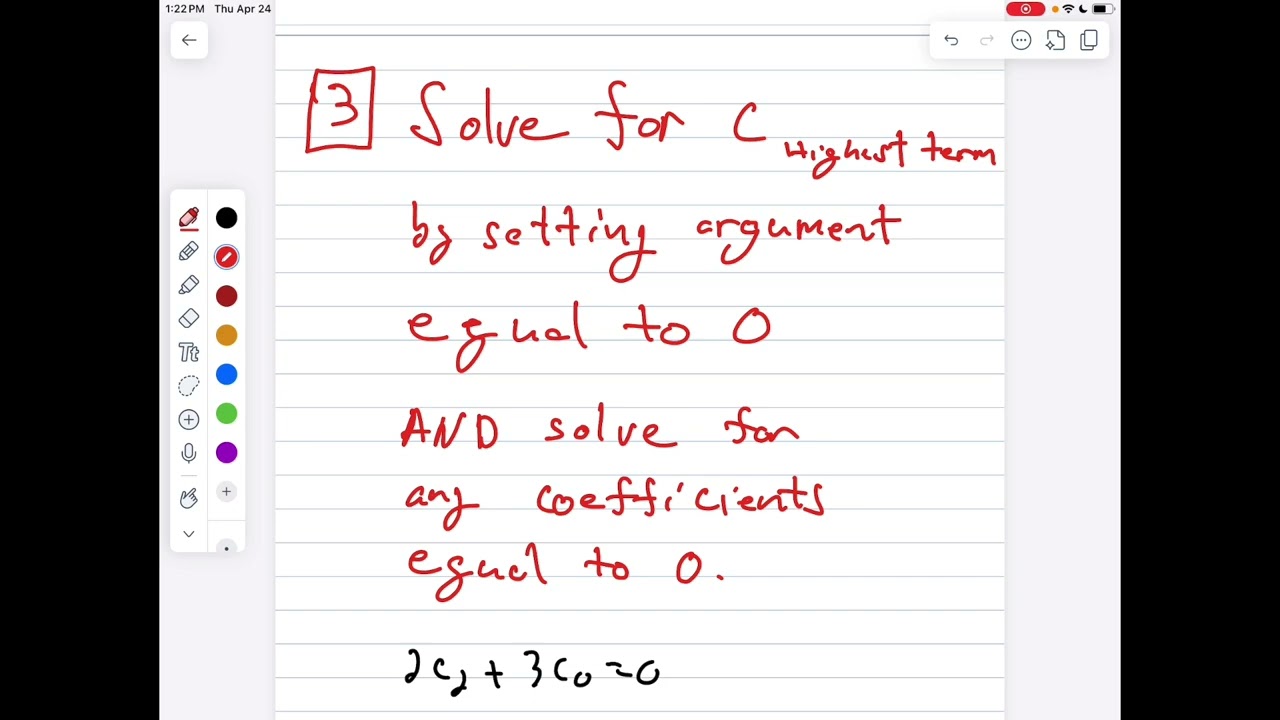 1:22 PM Thu Apr 24
3 Solve for C Highest term
by setting argument
equal to 0
AND solve for
any coefficients
equal to 0.
2C₂ + 3C₀ = 0
Tt